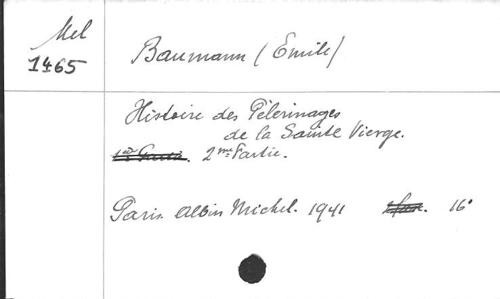 Mel
1465
Baumann (Emile)
Histoire des Pèlerinages
de la Sainte Vierge.
2me Partie.
Paris. Albin Michel. 1941 16°